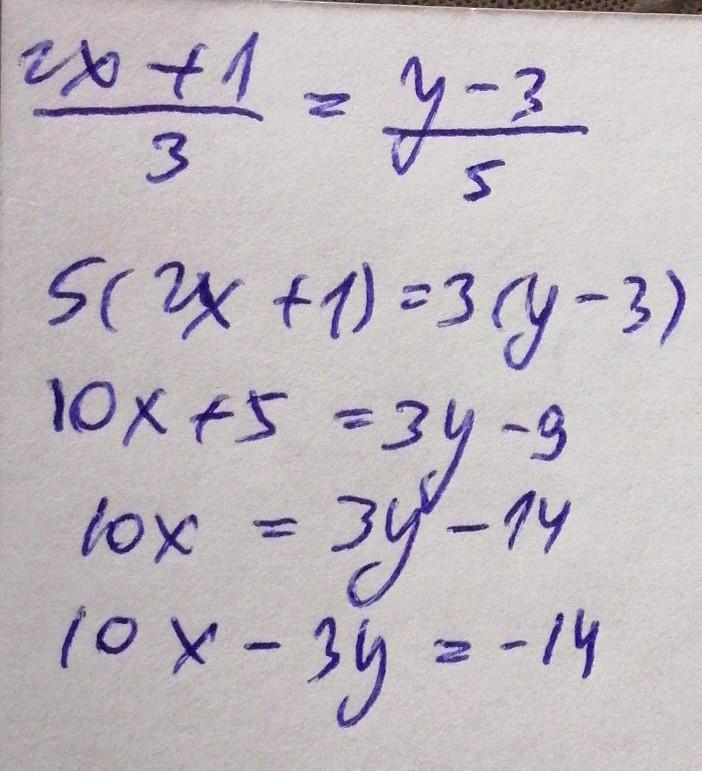 2x + 1 / 3 = y - 3 / 5
5(2x + 1) = 3(y - 3)
10x + 5 = 3y - 9
10x = 3y - 14
10x - 3y = -14